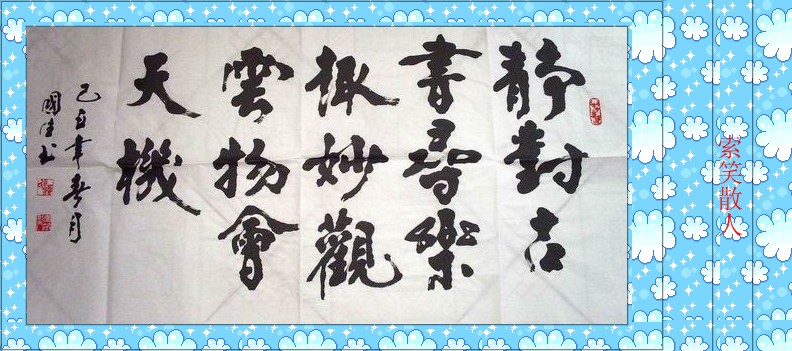 靜對古
書尋樂
趣妙觀
雲物會
天機
己丑年春月
國佳书
索笑散人